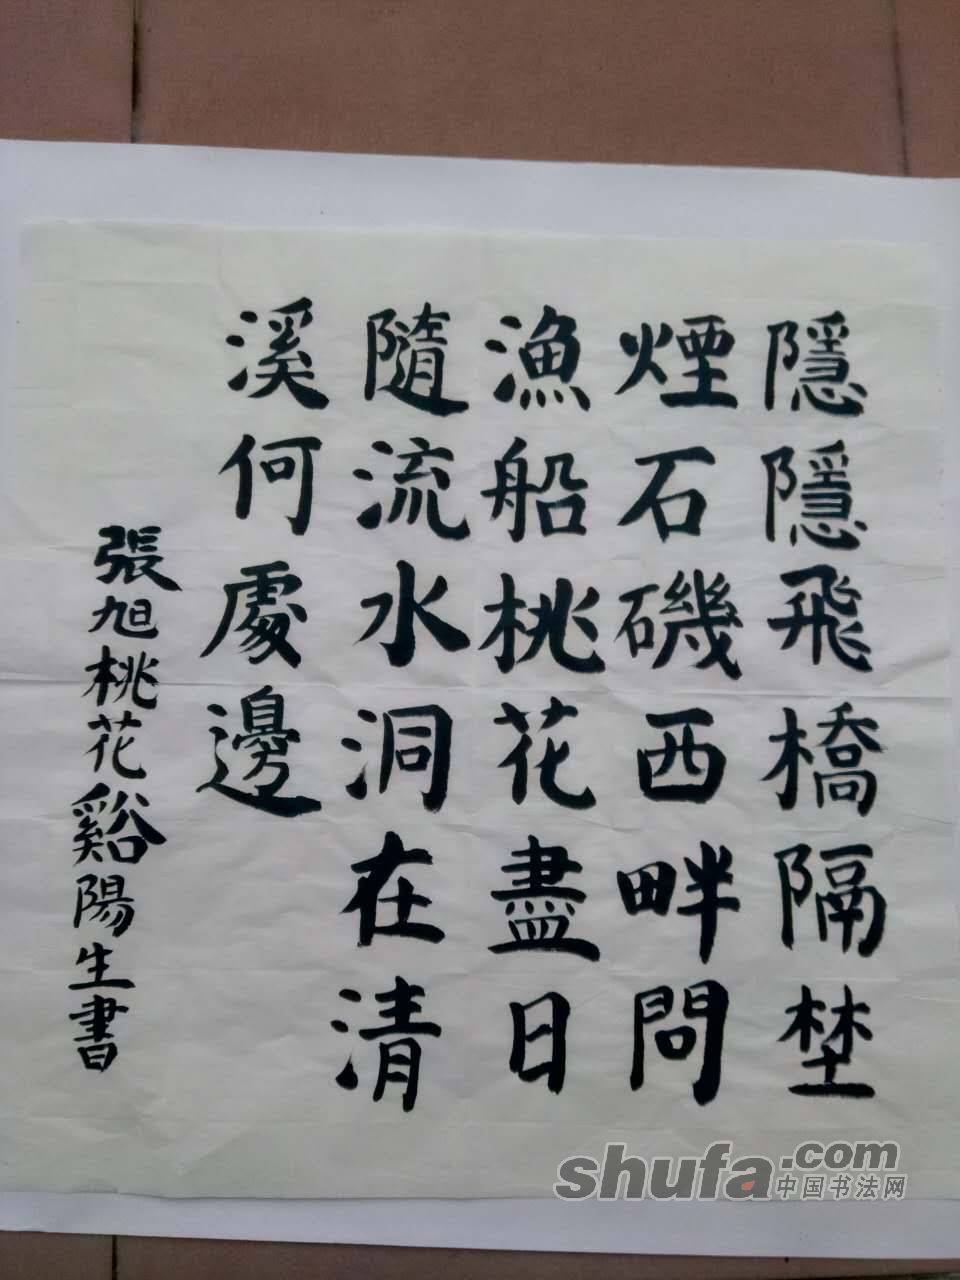 隱隱飛橋隔埜
煙石磯西畔問
漁船桃花盡日
隨流水洞在清
溪何處邊
張旭桃花谿陽生書
shufa.com
中国书法网